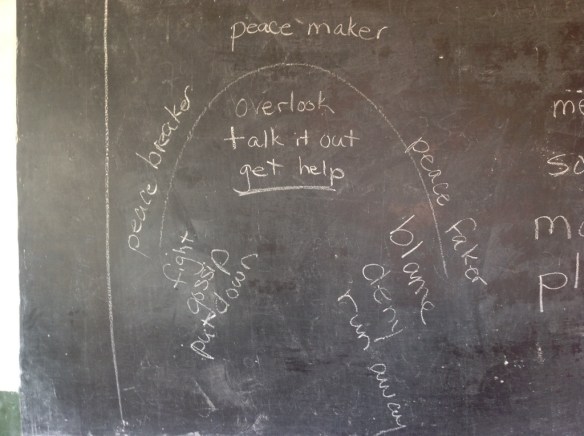 peace maker
overlook
talk it out
get help
peace breaker
fight
gossip
put down
peace faker
blame
deny
run away
me
so
mo
pl